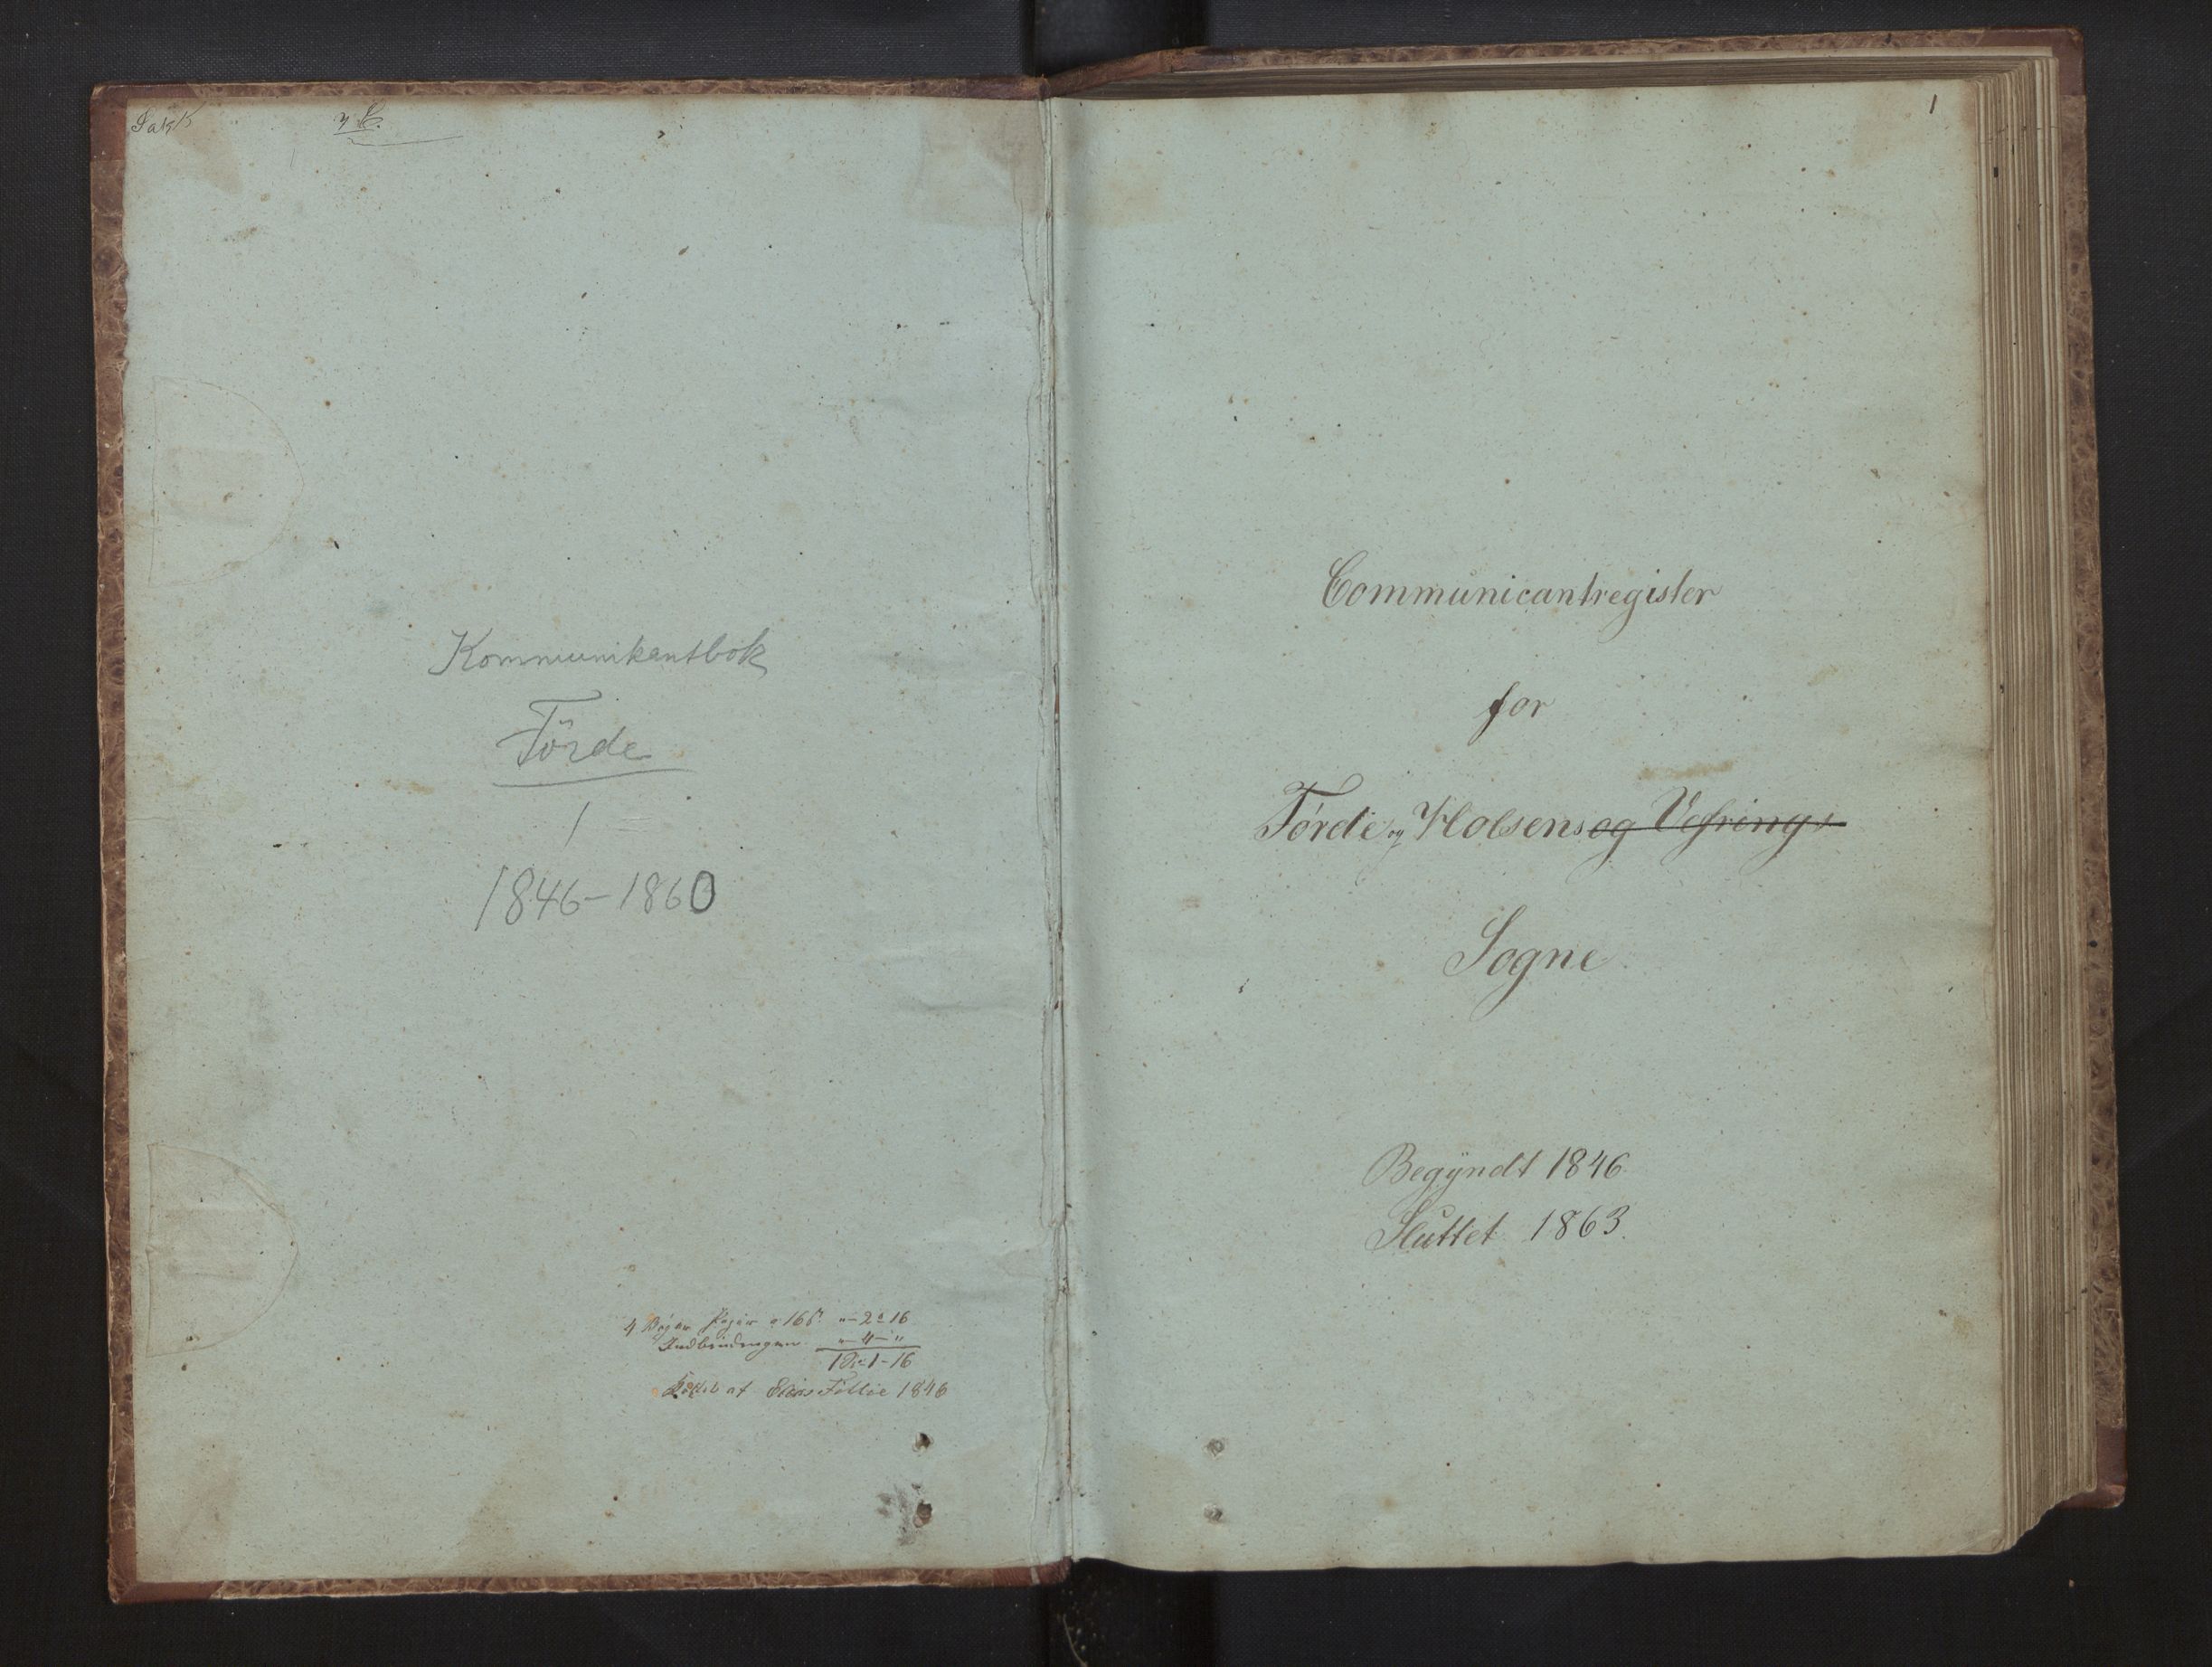 Kommunikantbok
Förde
1
1846-1860
4 Bøger Papir a 16
Indbindingen
1-16
af Elias 1846
1
Communicantregister
for
Førde og Holsens og Vefrings
Sogne
Begyndt 1846
Sluttet 1863.